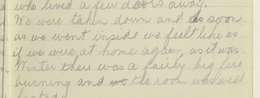 who lived a few doors away.
We were taken down and as soon
as we went inside we felt like as
if we were at home again, as it was
Winter there was a fairly big fire
burning and the room was well
heated